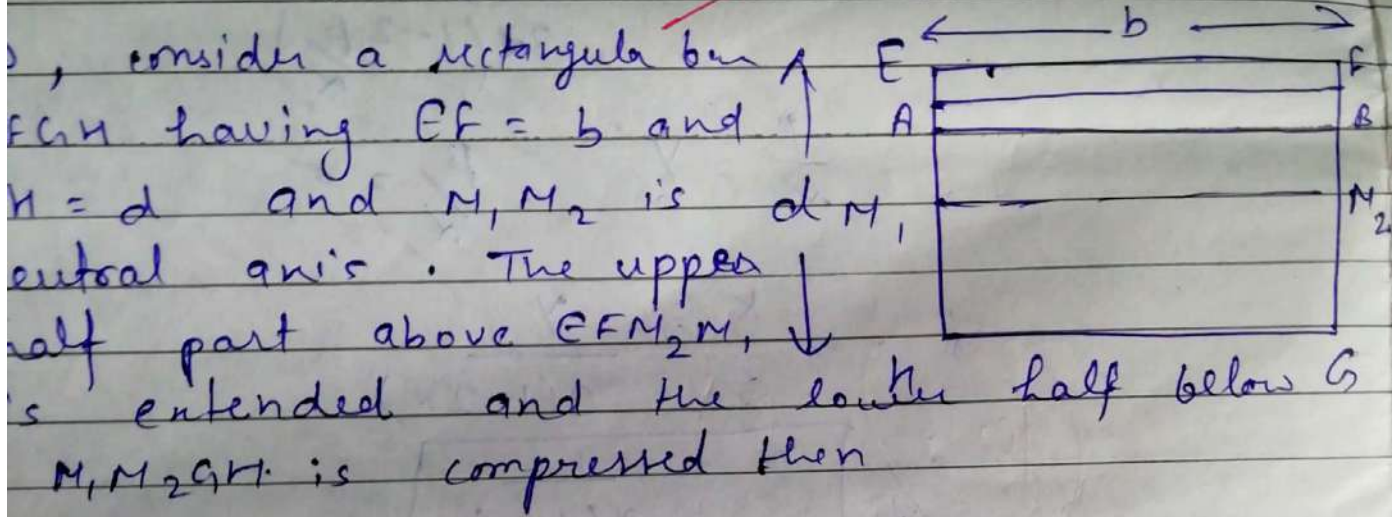 , consider a rectangula bar
FGH having EF = b and
H = d and M₁ M₂ is
eutral axis . The upper
half part above EFM₂M₁
s extended and the lowher half below
M₁M₂GH. is compressed then
b
E F
A B
d M₁ M₂
H G